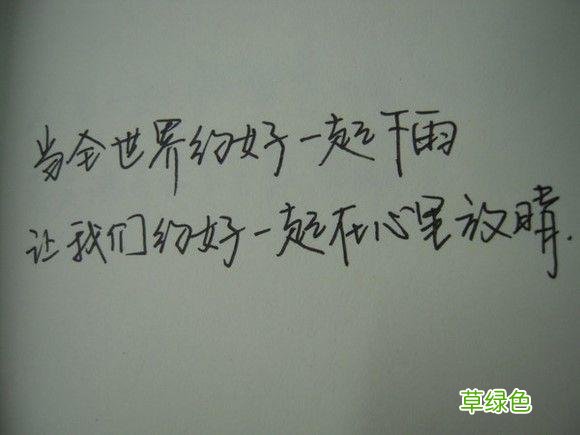 当全世界约好一起下雨
让我们约好一起在心里放晴.
草绿色